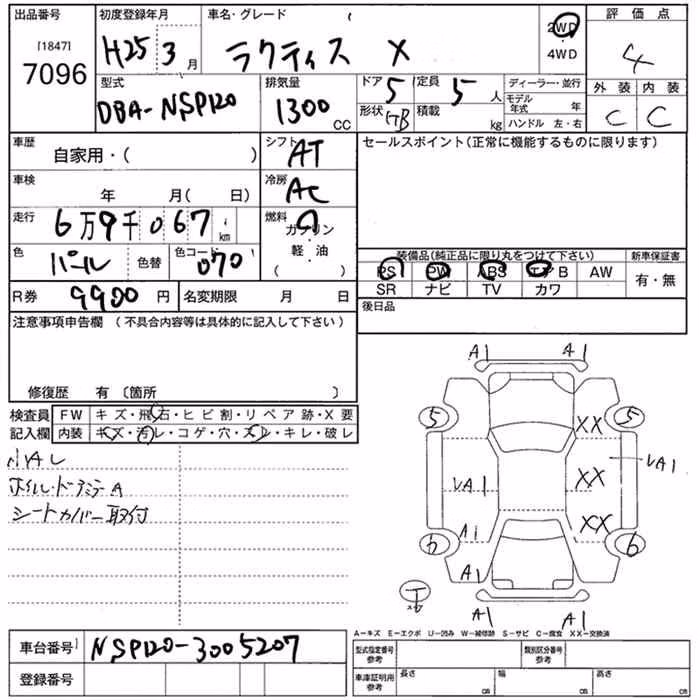 出品番号 初度登録年月 車名・グレード 評価点
[1847]
7096 H25 3月 ラクティス X 2WD・4WD 4
型式 排気量 ドア 5 定員 5人 ディーラー・並行 外装 内装
DBA-NSP120 1300CC 形状 積載 kg モデル年式 年 C C
ハンドル 左・右
車歴 自家用・( ) シフト AT セールスポイント(正常に機能するものに限ります)
車検 年 月( 日) 冷房 AC
走行 6万9千067km 燃料 ガソリン
色 パール 色替 色コード 070 軽・油
( )
装備品(純正品に限り丸をつけて下さい) 新車保証書
PS PW ABS エアB AW 有・無
SR ナビ TV カワ
R券 9980円 名変期限 月 日 後日品
注意事項申告欄 (不具合内容等は具体的に記入して下さい)
修復歴 有 〔箇所 〕
検査員 FW キズ・飛石・ヒビ割・リペア跡・X要
記入欄 内装 キズ・汚レ・コゲ・穴・スレ・キレ・破レ
A1 41
5 XX 5
小AL
ホイル・ドアミラーA
シートカバー取付
VA1 XX VA1
A1 XX
A1 6
A1 A1
A-キズ E-エクボ U-凹み W-補修跡 S-サビ C-腐食 XX-交換済
車台番号 NSP120-3005207
登録番号
型式指定番号 参考 類別区分番号 参考
車庫証明用 参考 長さ cm 幅 cm 高さ cm